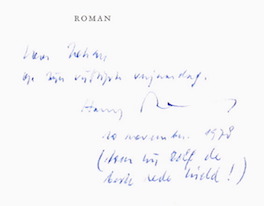 ROMAN
voor
op zijn vijftigste verjaardag.
Harry
10 november 1978
(toen hij zelf de
beste rede hield!)